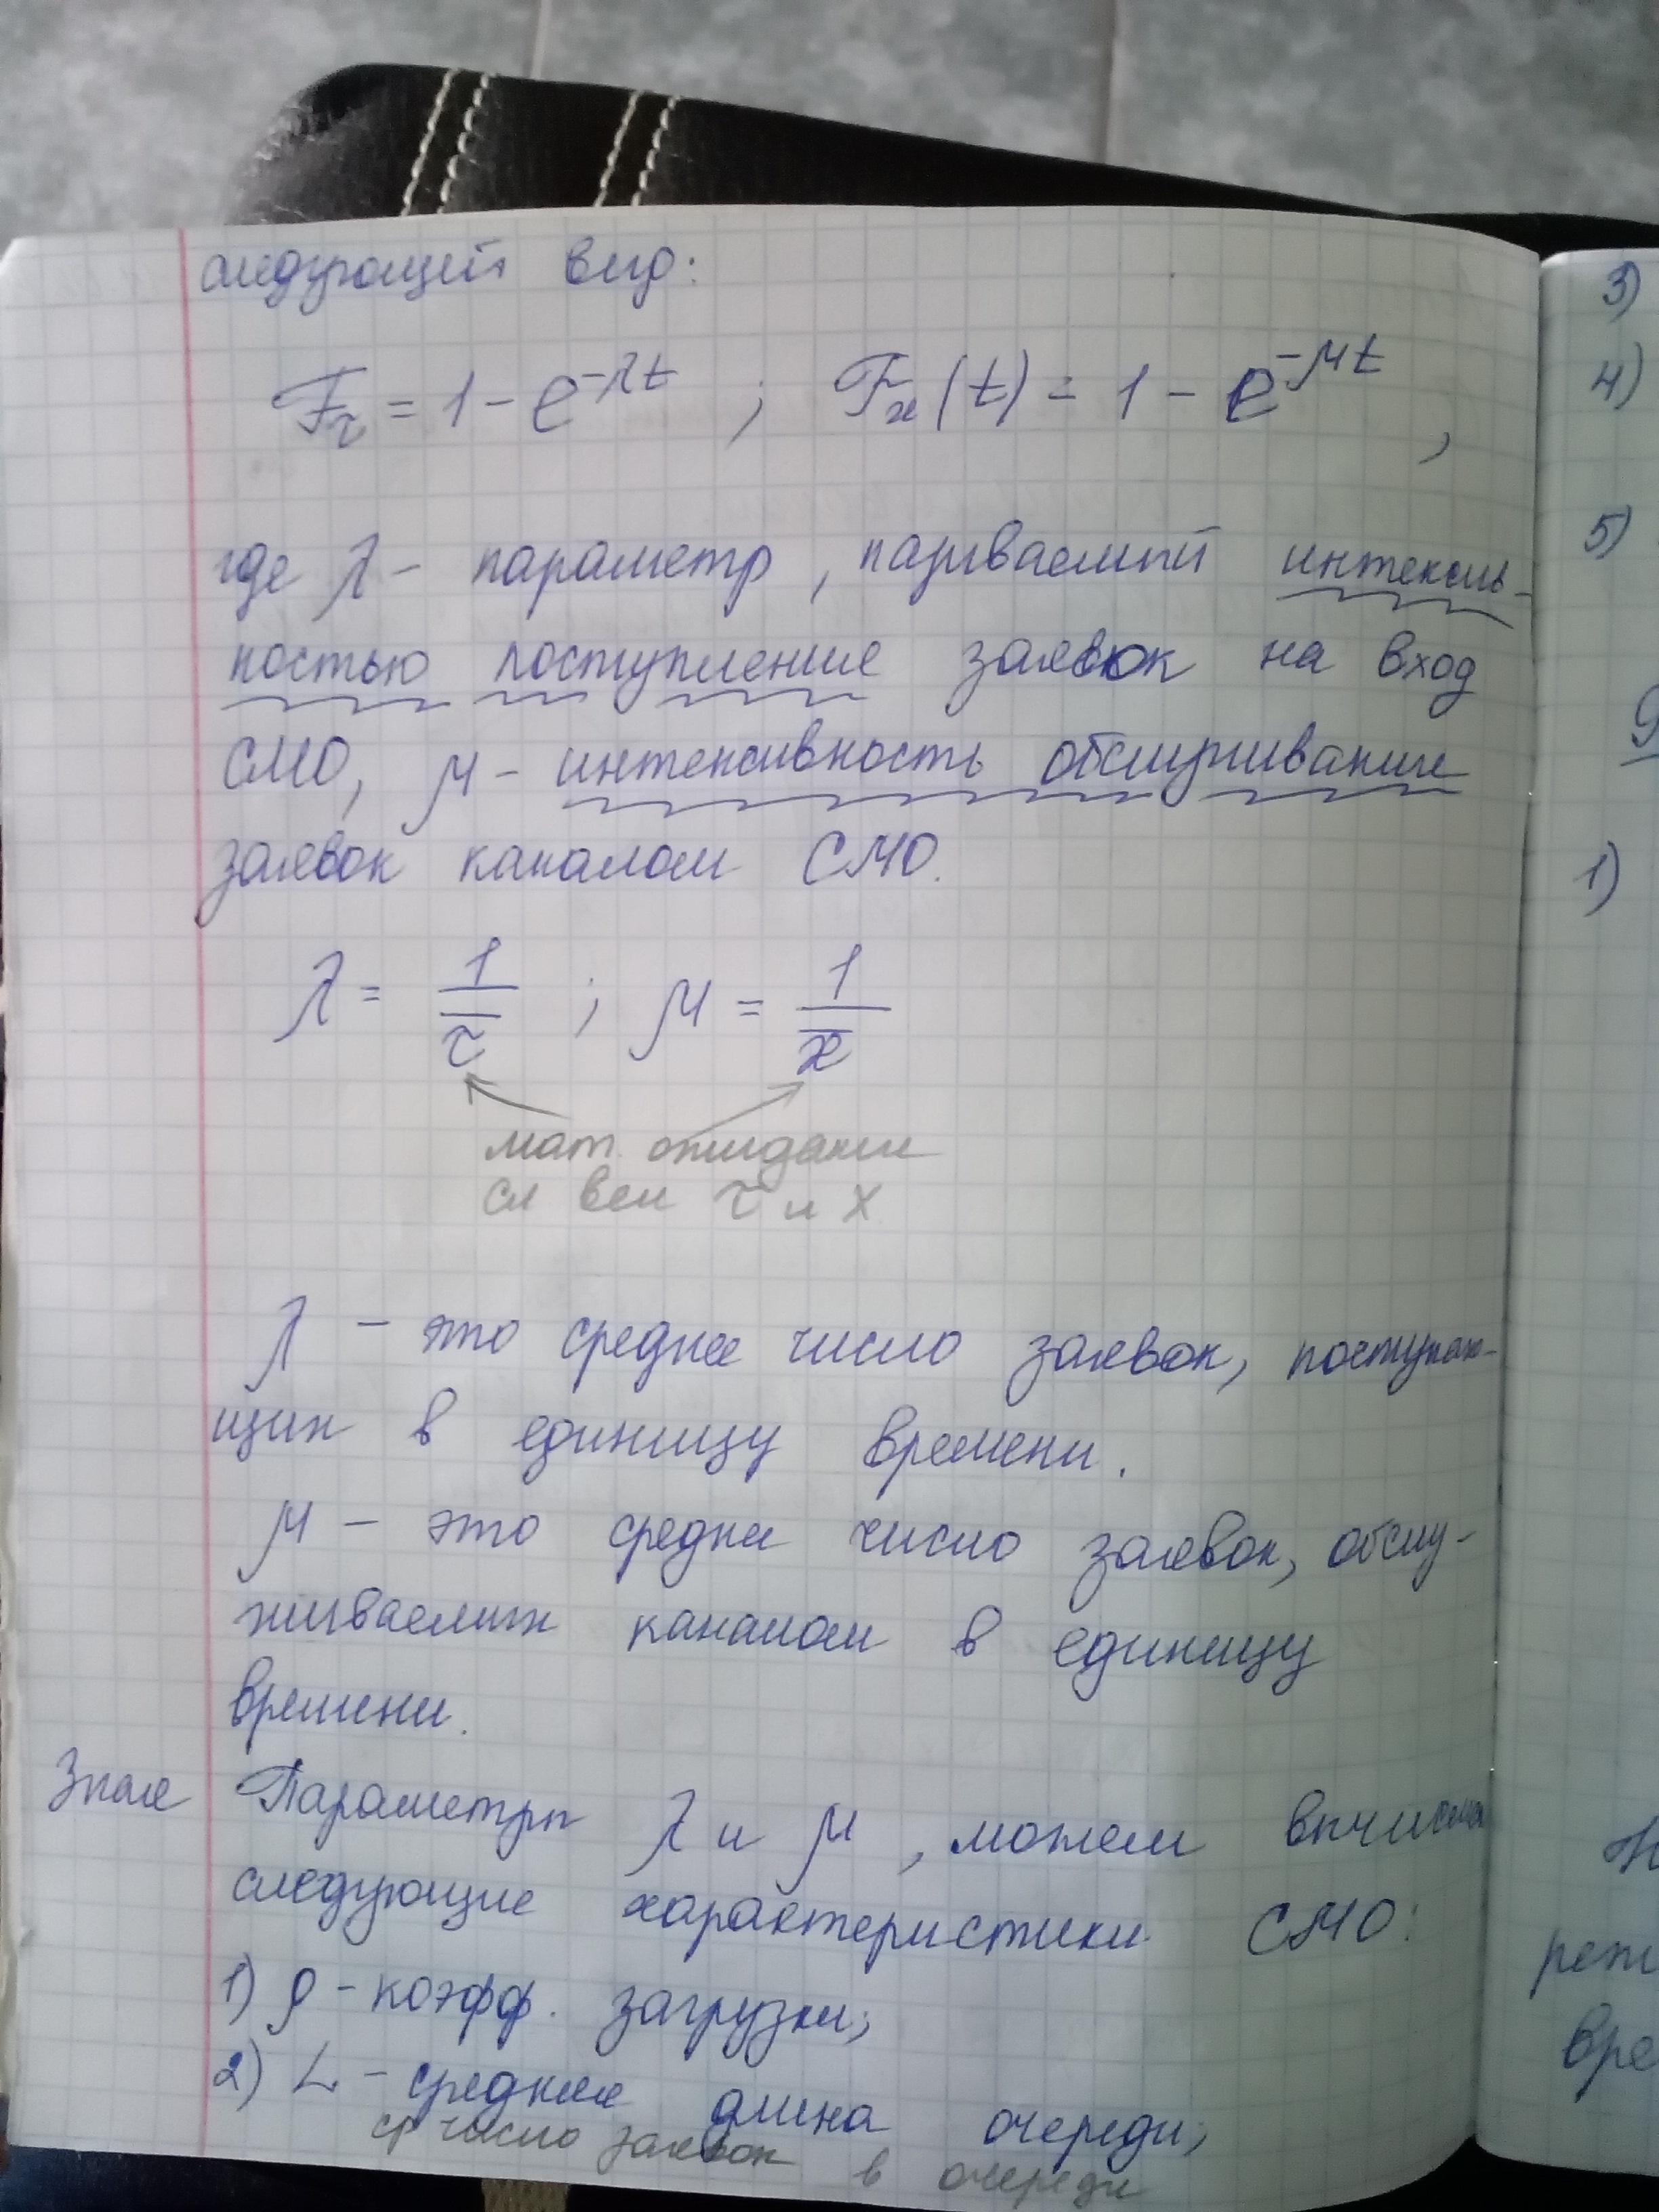 следующей вид:
Fτ = 1 - e^{-λt} ; Fx(t) = 1 - e^{-μt} ,
где λ - параметр, называемый интенсив-
ностью поступление заявок на вход
СМО, μ - интенсивность обслуживание
заявок каналом СМО.
λ = 1/τ̅ ; μ = 1/x̅
мат. ожидание
сл вел τ и x
λ - это среднее число заявок, поступаю-
щих в единицу времени.
μ - это средне число заявок, обслу-
живаемых каналом в единицу
времени.
Зная Параметры λ и μ, можем
следующие характеристики СМО:
1) ρ - коэфф. загрузки;
2) L - средняя длина очереди;
ср число заявок в очереди
3)
4)
5)
1)